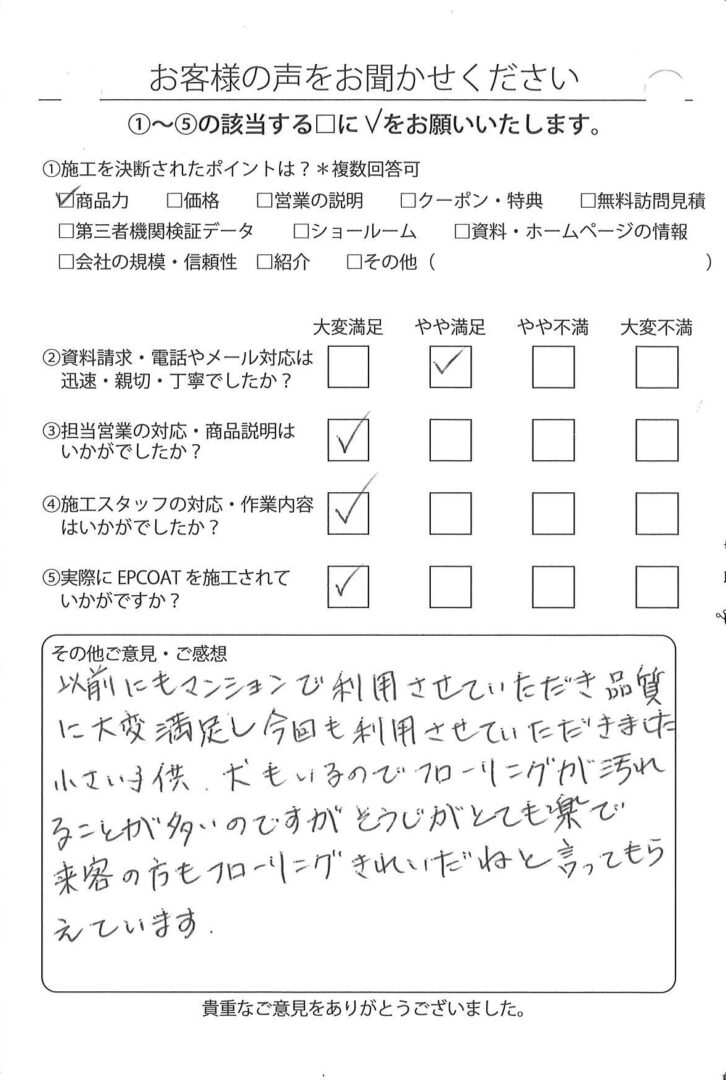 お客様の声をお聞かせください
①〜⑤の該当する□に√をお願いいたします。
①施工を決断されたポイントは？＊複数回答可
☑商品力 □価格 □営業の説明 □クーポン・特典 □無料訪問見積
□第三者機関検証データ □ショールーム □資料・ホームページの情報
□会社の規模・信頼性 □紹介 □その他（ ）
大変満足 やや満足 やや不満 大変不満
②資料請求・電話やメール対応は
迅速・親切・丁寧でしたか？ □ ☑ □ □
③担当営業の対応・商品説明は
いかがでしたか？ ☑ □ □ □
④施工スタッフの対応・作業内容
はいかがでしたか？ ☑ □ □ □
⑤実際に EPCOAT を施工されて
いかがですか？ ☑ □ □ □
その他ご意見・ご感想
以前にもマンションで利用させていただき品質
に大変満足し今回も利用させていただきました
小さい子供．犬もいるのでフローリングが汚れ
ることが多いのですがそうじがとても楽で
来客の方もフローリングきれいだねと言ってもら
えています．
貴重なご意見をありがとうございました。